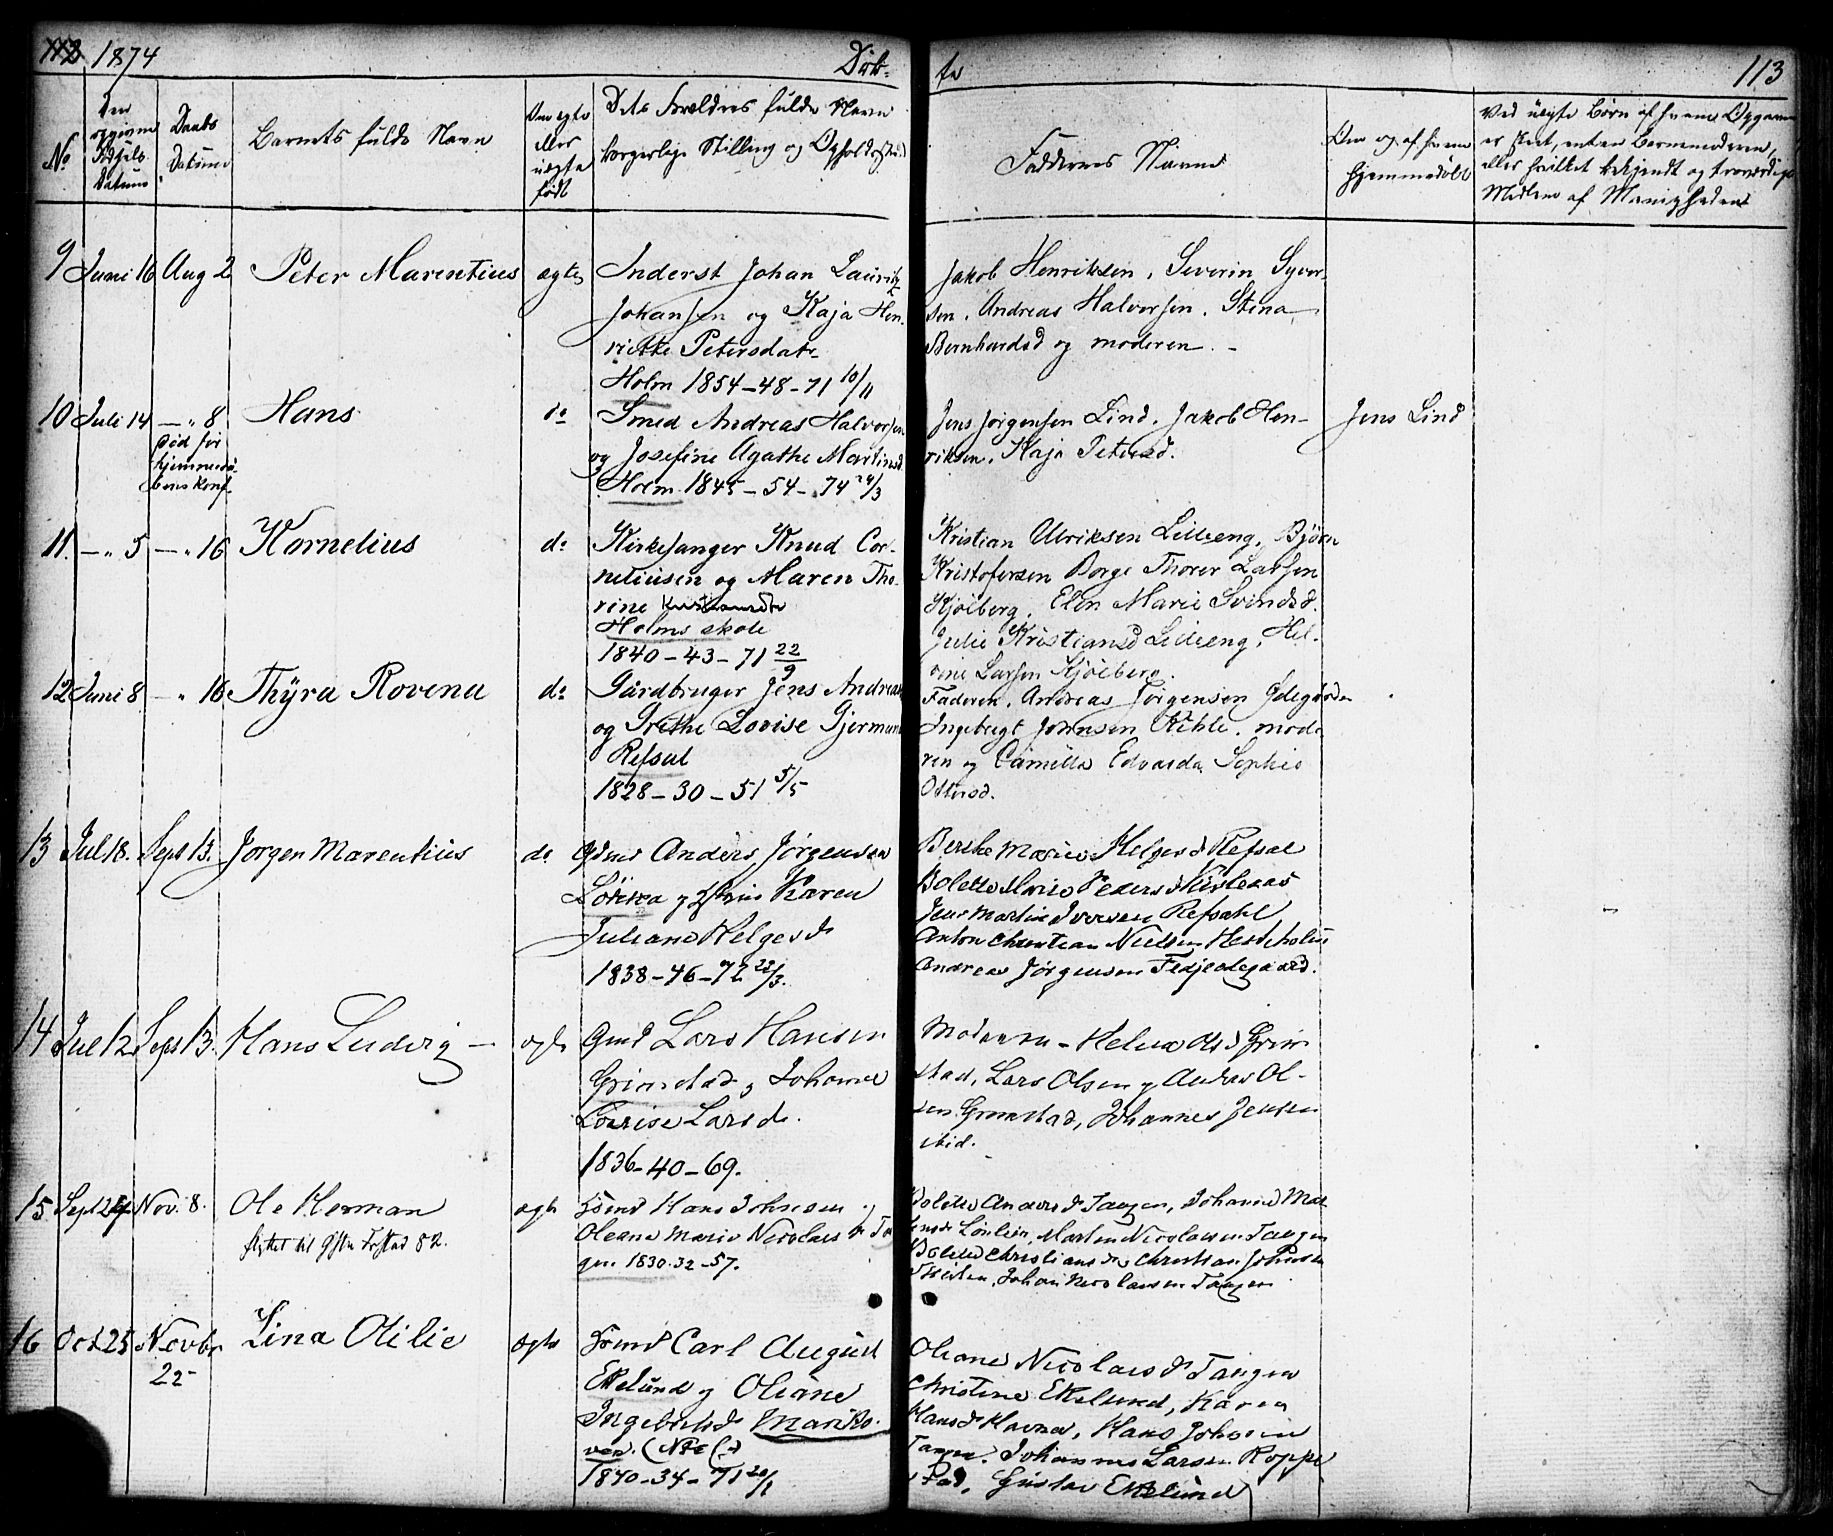 112 1874
Døb-
te
113
No
Den
opgivne
Fødsels
Datum
Daabs
Datum
Barnets fulde Navn
Om ægte
eller
uægte
født
Dets Forældres fulde Navn
borgerlige Stilling og Opholdssted
Faddernes Navne
Om og af hvem
hjemmedøbt
Ved uægte Børn af hvem Opgaven
er skeet, enten Barnemoderen,
eller hvilket bekjendt og troværdigt
Medlem af Menigheden
9 Juni 16 Aug 2 Peter Marentius ægte
Inderst Johan Lauritz
Johansen og Kaja Hen-
riette Petersdatr
Holm 1854-48-71 10/11
Jakob Henriksen, Severin Syver-
sen, Andreas Halvorsen, Stina
Bernhardsd og moderen. -
10 Juli 14 -"- 8 Hans do
død før
hjemmedå-
bens konf-
Smed Andreas Halvorsen
og Josefine Agathe Martinsd
Holm 1845-54-74 29/3
Jens Jörgensen Lind, Jakob Hen-
riksen, Kaja Petersd.
Jens Lind
11. -"- 5 -"- 16 Kornelius do
Kirkesanger Knud Cor-
neliusen og Maren Tho-
rine Kristiansdtr
Holms skole
1840-43-71 22/9
Kristian Ulriksen Lilleeng, Björn
Kristofersen Borge Thorer Larsen
Kjölberg, Elen Marie Svendsd.
Julie Kristiansd Lilleeng, Hel-
ene Larsen Kjölberg.
12 Juni 8 -"- 16 Thyra Rovena do
Gårdbruger Jens Andreas
og Grethe Lovise Gjermun
Refsal
1828-30-51 5/5
Faderen, Andreas Jörgensen Ödegården
Ingebrigt Johnsen Kihle, mode-
ren og Camilla Edvarda Sophie
Ottersd.
13 Jul 18. Sept 13. Jorgen Marentius do
Gdmd Anders Jörgensen
og Hustru Karen
Juliane Helgesd
1838-46-72 22/3.
Berthe Marie Helgesd Refsal
Bolette Marie Pedersd
Jens Martin Iversen Refsahl
Anton Christian Nielsen
Andreas Jörgensen
14 Jul 12 Sept 13. Hans Ludvig - ægte
Gmd Lars Hansen
Grimstad og Johanne
Lovise Larsd.
1836-40-69.
Moderen - Helene Olsd Grim
stad, Lars Olsen og Anders Ol-
sen Grimstad, Johannes Jensen
ibid.
15. Sept 24 Nov. 8. Ole Herman ægte
flyttet til 82.
Hans Johnsen
Oleane Marie Nicolaisd Tan
gen 1830.32-57.
Bolette Andersd Tangen, Johanne Mat
Martin Nicolaisen Tangen
Bolette Christiansd, Christian Johnsen
Johan Nicolaisen Tangen
16 Oct 25 Novbr
22- Lina Otilie ægte
Carl August
Ekelund og Oliane
Ingebretsd Mariko-
ven (
1840-34-71 20/1
Oliane Nicolaisd Tangen
Christine Ekelund, Karen
Hansd Havna, Hans Johnsen
Tangen, Johannes Larsen Roppe
stad, Gustav Ekelund